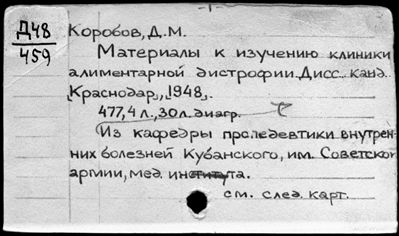 - 1 -
Д48
459
Коробов, Д.М.
Материалы к изучению клиники
алиментарной дистрофии. Дисс. канд.
Краснодар, 1948.
477,4 л., 30 л. диагр.
Из кафедры пропедевтики внутрен-
них болезней Кубанского, им. Советской
армии, мед. института.
см. след. карт.